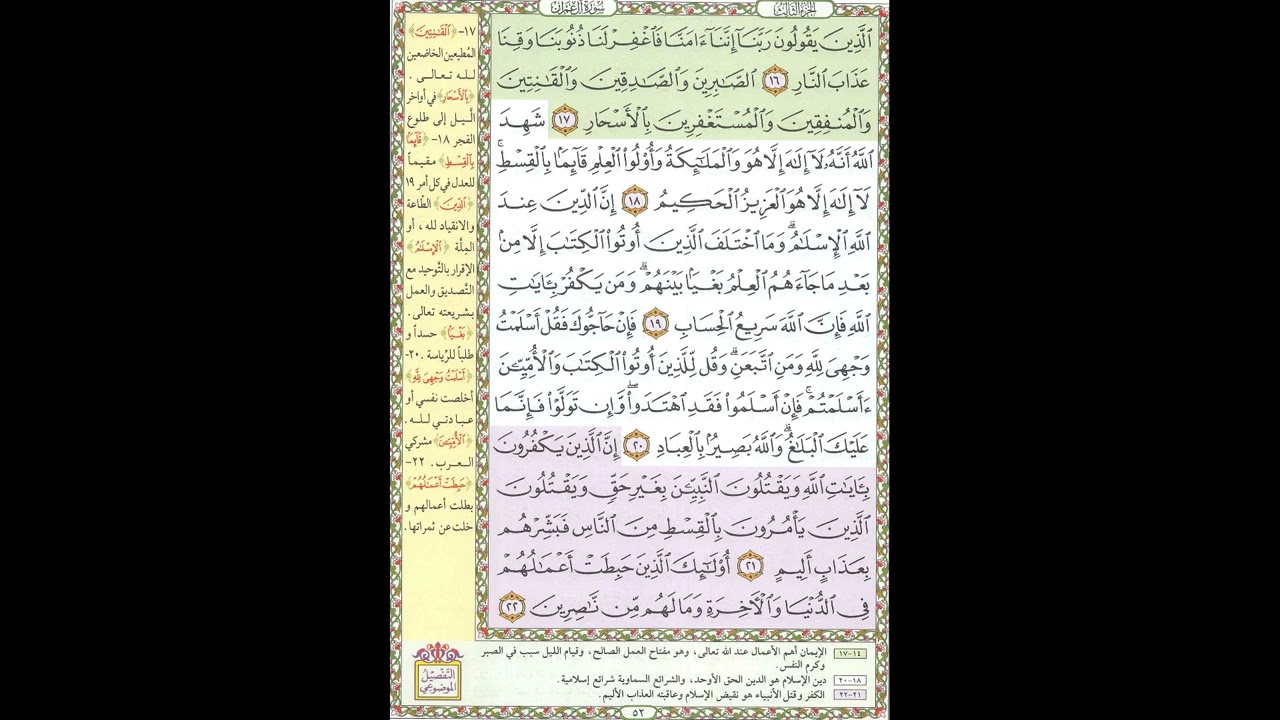 الجزء الثالث
سورة آل عمران
الَّذِينَ يَقُولُونَ رَبَّنَا إِنَّنَا ءَامَنَّا فَاغْفِرْ لَنَا ذُنُوبَنَا وَقِنَا
عَذَابَ النَّارِ ١٦ الصَّابِرِينَ وَالصَّادِقِينَ وَالْقَانِتِينَ
وَالْمُنفِقِينَ وَالْمُسْتَغْفِرِينَ بِالْأَسْحَارِ ١٧ شَهِدَ
اللَّهُ أَنَّهُ لَا إِلَٰهَ إِلَّا هُوَ وَالْمَلَائِكَةُ وَأُولُوا الْعِلْمِ قَائِمًا بِالْقِسْطِ ۚ
لَا إِلَٰهَ إِلَّا هُوَ الْعَزِيزُ الْحَكِيمُ ١٨ إِنَّ الدِّينَ عِندَ
اللَّهِ الْإِسْلَامُ ۗ وَمَا اخْتَلَفَ الَّذِينَ أُوتُوا الْكِتَابَ إِلَّا مِنْ
بَعْدِ مَا جَاءَهُمُ الْعِلْمُ بَغْيًا بَيْنَهُمْ ۗ وَمَن يَكْفُرْ بِـَٔايَاتِ
اللَّهِ فَإِنَّ اللَّهَ سَرِيعُ الْحِسَابِ ١٩ فَإِنْ حَاجُّوكَ فَقُلْ أَسْلَمْتُ
وَجْهِيَ لِلَّهِ وَمَنِ اتَّبَعَنِ ۗ وَقُل لِّلَّذِينَ أُوتُوا الْكِتَابَ وَالْأُمِّيِّينَ
ءَأَسْلَمْتُمْ ۚ فَإِنْ أَسْلَمُوا فَقَدِ اهْتَدَوا ۖ وَّإِن تَوَلَّوْا فَإِنَّمَا
عَلَيْكَ الْبَلَاغُ ۗ وَاللَّهُ بَصِيرٌ بِالْعِبَادِ ٢٠ إِنَّ الَّذِينَ يَكْفُرُونَ
بِـَٔايَاتِ اللَّهِ وَيَقْتُلُونَ النَّبِيِّينَ بِغَيْرِ حَقٍّ وَيَقْتُلُونَ
الَّذِينَ يَأْمُرُونَ بِالْقِسْطِ مِنَ النَّاسِ فَبَشِّرْهُم
بِعَذَابٍ أَلِيمٍ ٢١ أُولَٰئِكَ الَّذِينَ حَبِطَتْ أَعْمَالُهُمْ
فِي الدُّنْيَا وَالْآخِرَةِ وَمَا لَهُم مِّن نَّاصِرِينَ ٢٢
١٧- ﴿الْقَانِتِينَ﴾
المُطيعين الخاضعين
لله تعالى .
﴿بِالْأَسْحَارِ﴾ في أواخر
الليل إلى طلوع
الفجر ١٨- ﴿قَائِمًا
بِالْقِسْطِ﴾ مقيماً
للعدل في كل أمر ١٩
﴿الدِّينَ﴾ الطّاعة
والانقياد لله ، أو
المِلّة ﴿الْإِسْلَامُ﴾
الإقرار بالتَّوحيد مع
التَّصديق والعمل
بشريعته تعالى.
﴿بَغْيًا﴾ حسداً و
طلباً للرِّياسة .٢٠-
﴿أَسْلَمْتُ وَجْهِيَ لِلَّهِ﴾
أخلصت نفسي أو
عبادتي لله .
﴿الْأُمِّيِّينَ﴾ مشركي
العرب. ٢٢-
﴿حَبِطَتْ أَعْمَالُهُمْ﴾
بطلت أعمالهم و
خلت عن ثمراتها.
التَّفْصِيلُ
المَوْضُوعِيّ
١٤-١٧ الإيمان أهم الأعمال عند الله تعالى، وهو مفتاح العمل الصالح، وقيام الليل سبب في الصبر
وكرم النفس.
١٨-٢٠ دين الإسلام هو الدين الحق الأوحد، والشرائع السماوية شرائع إسلامية.
٢١-٢٢ الكفر وقتل الأنبياء هو نقيض الإسلام وعاقبته العذاب الأليم.
٥٢